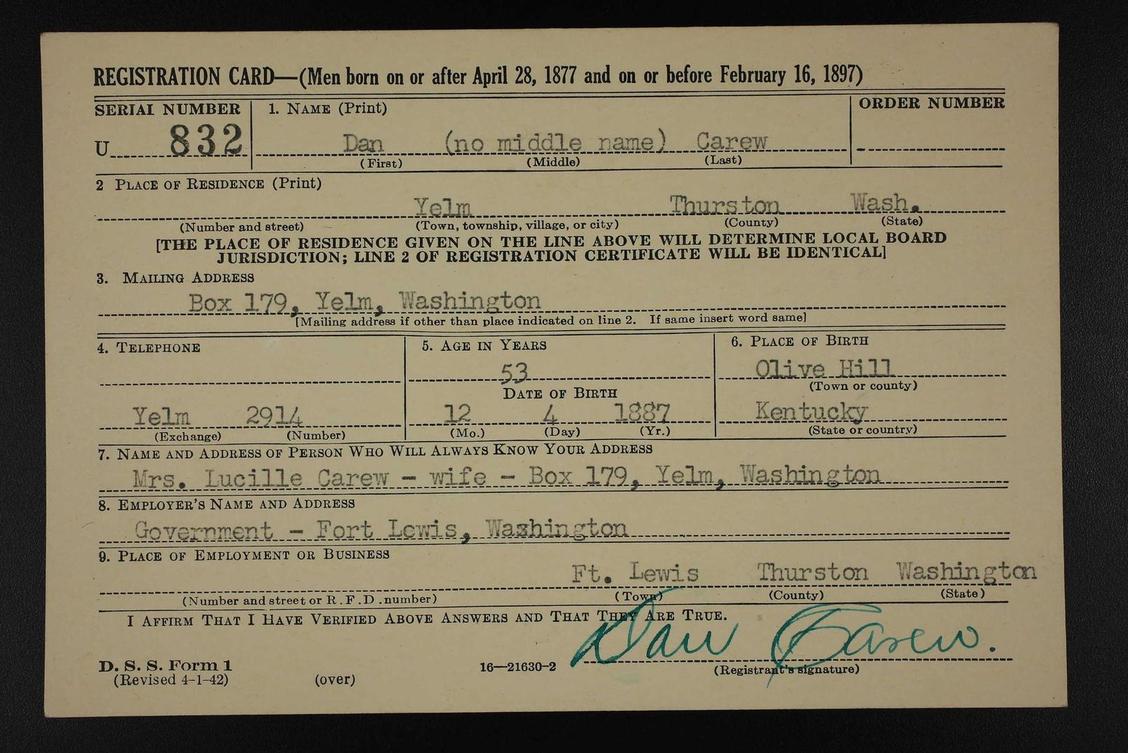 REGISTRATION CARD—(Men born on or after April 28, 1877 and on or before February 16, 1897)
SERIAL NUMBER 1. NAME (Print) ORDER NUMBER
U 832 Dan (no middle name) Carew
(First) (Middle) (Last)
2 PLACE OF RESIDENCE (Print)
Yelm Thurston Wash.
(Number and street) (Town, township, village, or city) (County) (State)
[THE PLACE OF RESIDENCE GIVEN ON THE LINE ABOVE WILL DETERMINE LOCAL BOARD
JURISDICTION; LINE 2 OF REGISTRATION CERTIFICATE WILL BE IDENTICAL]
3. MAILING ADDRESS
Box 179, Yelm, Washington
[Mailing address if other than place indicated on line 2. If same insert word same]
4. TELEPHONE 5. AGE IN YEARS 6. PLACE OF BIRTH
53 Olive Hill
DATE OF BIRTH (Town or county)
Yelm 2914 12 4 1887 Kentucky
(Exchange) (Number) (Mo.) (Day) (Yr.) (State or country)
7. NAME AND ADDRESS OF PERSON WHO WILL ALWAYS KNOW YOUR ADDRESS
Mrs. Lucille Carew - wife - Box 179, Yelm, Washington
8. EMPLOYER'S NAME AND ADDRESS
Government - Fort Lewis, Washington
9. PLACE OF EMPLOYMENT OR BUSINESS
Ft. Lewis Thurston Washington
(Number and street or R.F.D. number) (Town) (County) (State)
I AFFIRM THAT I HAVE VERIFIED ABOVE ANSWERS AND THAT THEY ARE TRUE.
Dan Carew.
D. S. S. Form 1 16—21630-2 (Registrant's signature)
(Revised 4-1-42) (over)